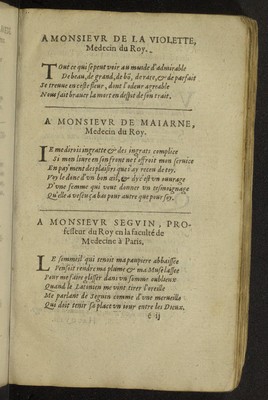 A MONSIEVR DE LA VIOLETTE,
Medecin du Roy.
TOut ce qui se peut voir au monde d'admirable
De beau, de grand, de bõ, de rare, & de parfait
Se treuue en ceste fleur, dont l'odeur agreable
Nous fait brauer la mort en despit de son trait.
A MONSIEVR DE MAIARNE,
Medecin du Roy.
IE me dirois ingratte & des ingrats complice
Si mon liure en son front ne t'offroit mon seruice
En payment des plaisirs que i'ay receu de toy.
Voy le donc d'vn bon œil, & dy c'est vn ouurage
D'vne femme qui veut donner vn tesmoignage
Qu'elle a vescu ça bas pour autre que pour soy.
A MONSIEVR SEGVIN, PRO-
fesseur du Roy en la faculté de
Medecine à Paris.
LE sommeil qui tenoit ma paupiere abbaissée
Pensoit rendre ma plume & ma Muse lassée
Pour me faire glisser dans vn somme oublieux
Quand le Latonien me vint tirer l'oreille
Me parlant de Seguin comme d'vne merueille
Qui doit tenir sa place vn iour entre les Dieux.
é ij